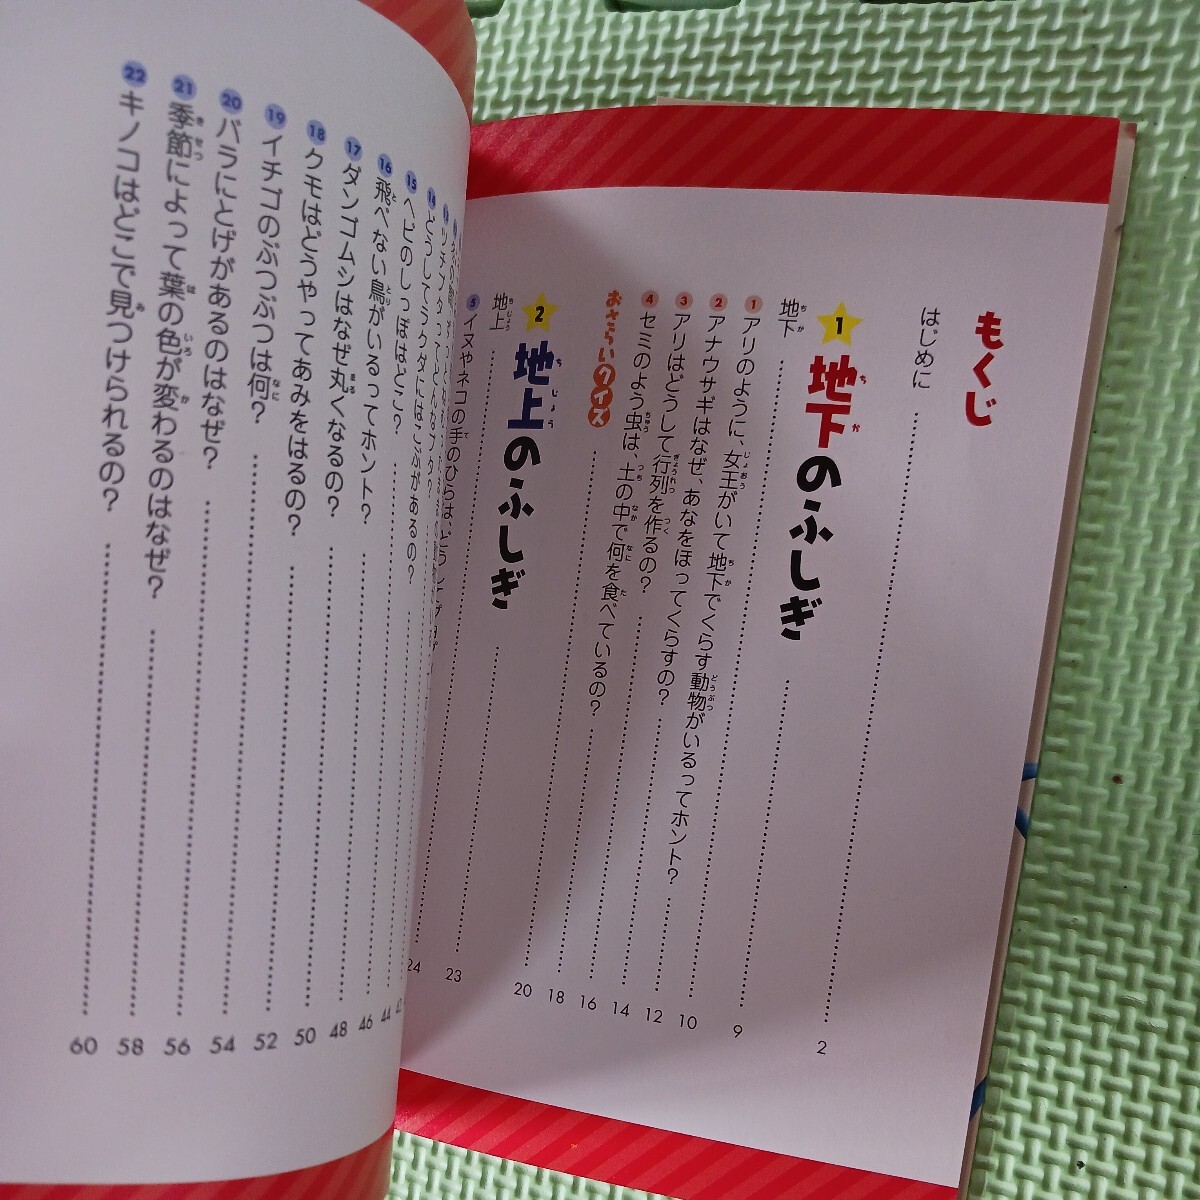 もくじ
はじめに 2
1 地下のふしぎ 9
地下 10
1 アリのように、女王がいて地下でくらす動物がいるってホント? 12
2 アナウサギはなぜ、あなをほってくらすの? 14
3 アリはどうして行列を作るの? 16
4 セミのよう虫は、土の中で何を食べているの? 18
おさらいクイズ 20
2 地上のふしぎ 23
地上 24
5 イヌやネコの手のひらは、どうして
14 どうしてラクダにはこぶがあるの? 44
15 ヘビのしっぽはどこ? 46
16 飛べない鳥がいるってホント? 48
17 ダンゴムシはなぜ丸くなるの? 50
18 クモはどうやってあみをはるの? 52
19 イチゴのぶつぶつは何? 54
20 バラにとげがあるのはなぜ? 56
21 季節によって葉の色が変わるのはなぜ? 58
22 キノコはどこで見つけられるの? 60